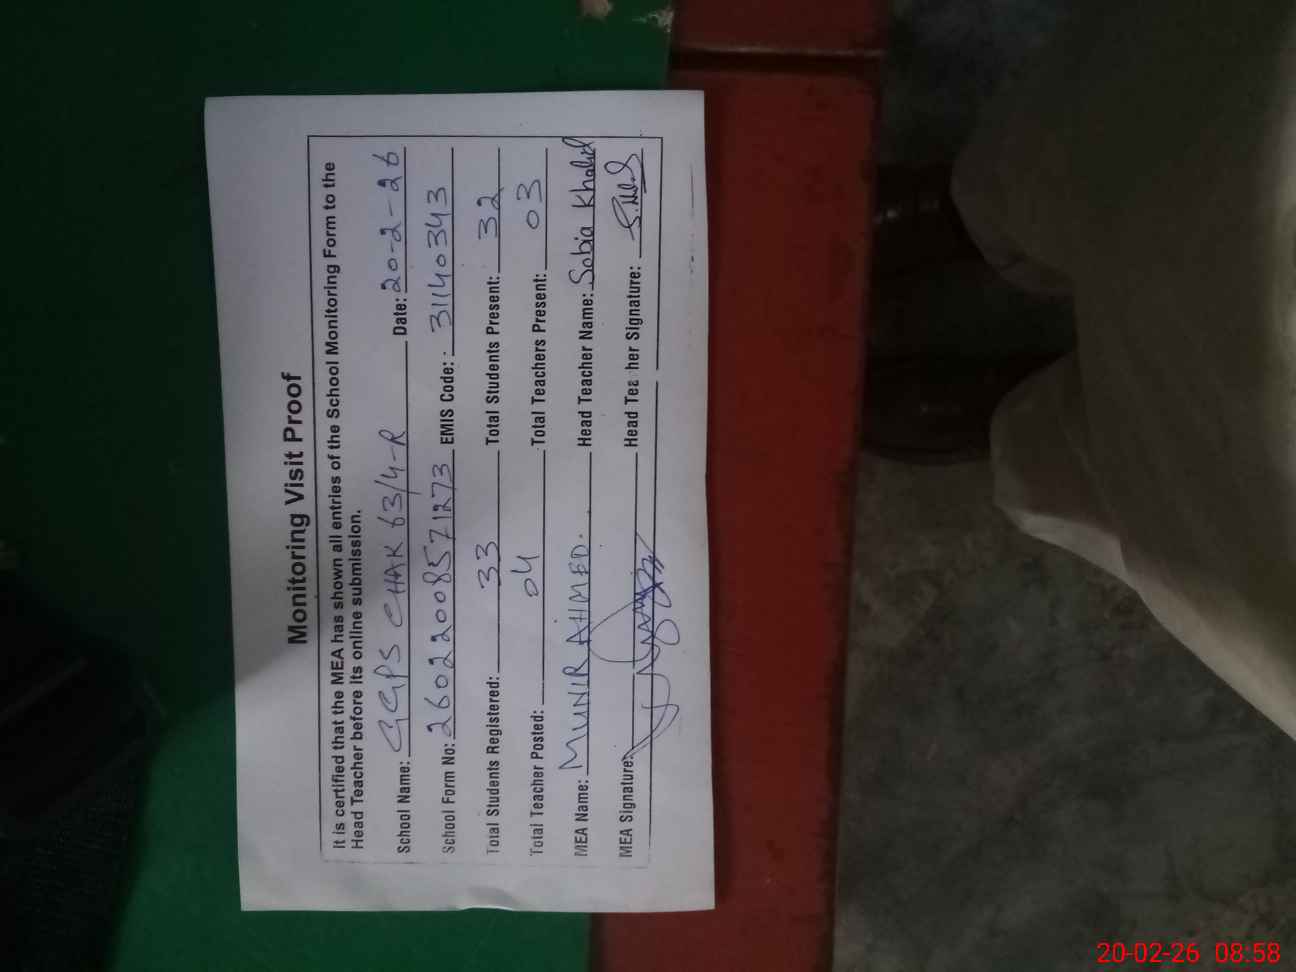 Monitoring Visit Proof
It is certified that the MEA has shown all entries of the School Monitoring Form to the
Head Teacher before its online submission.
School Name: GGPS CHAK 63/4-R Date: 20-2-26
School Form No: 26022008571273 EMIS Code: 31140343
Total Students Registered: 33 Total Students Present: 32
Total Teacher Posted: 04 Total Teachers Present: 03
MEA Name: MUNIR AHMED. Head Teacher Name: Sobia Khalid
MEA Signature: Head Teacher Signature:
20-02-26 08:58